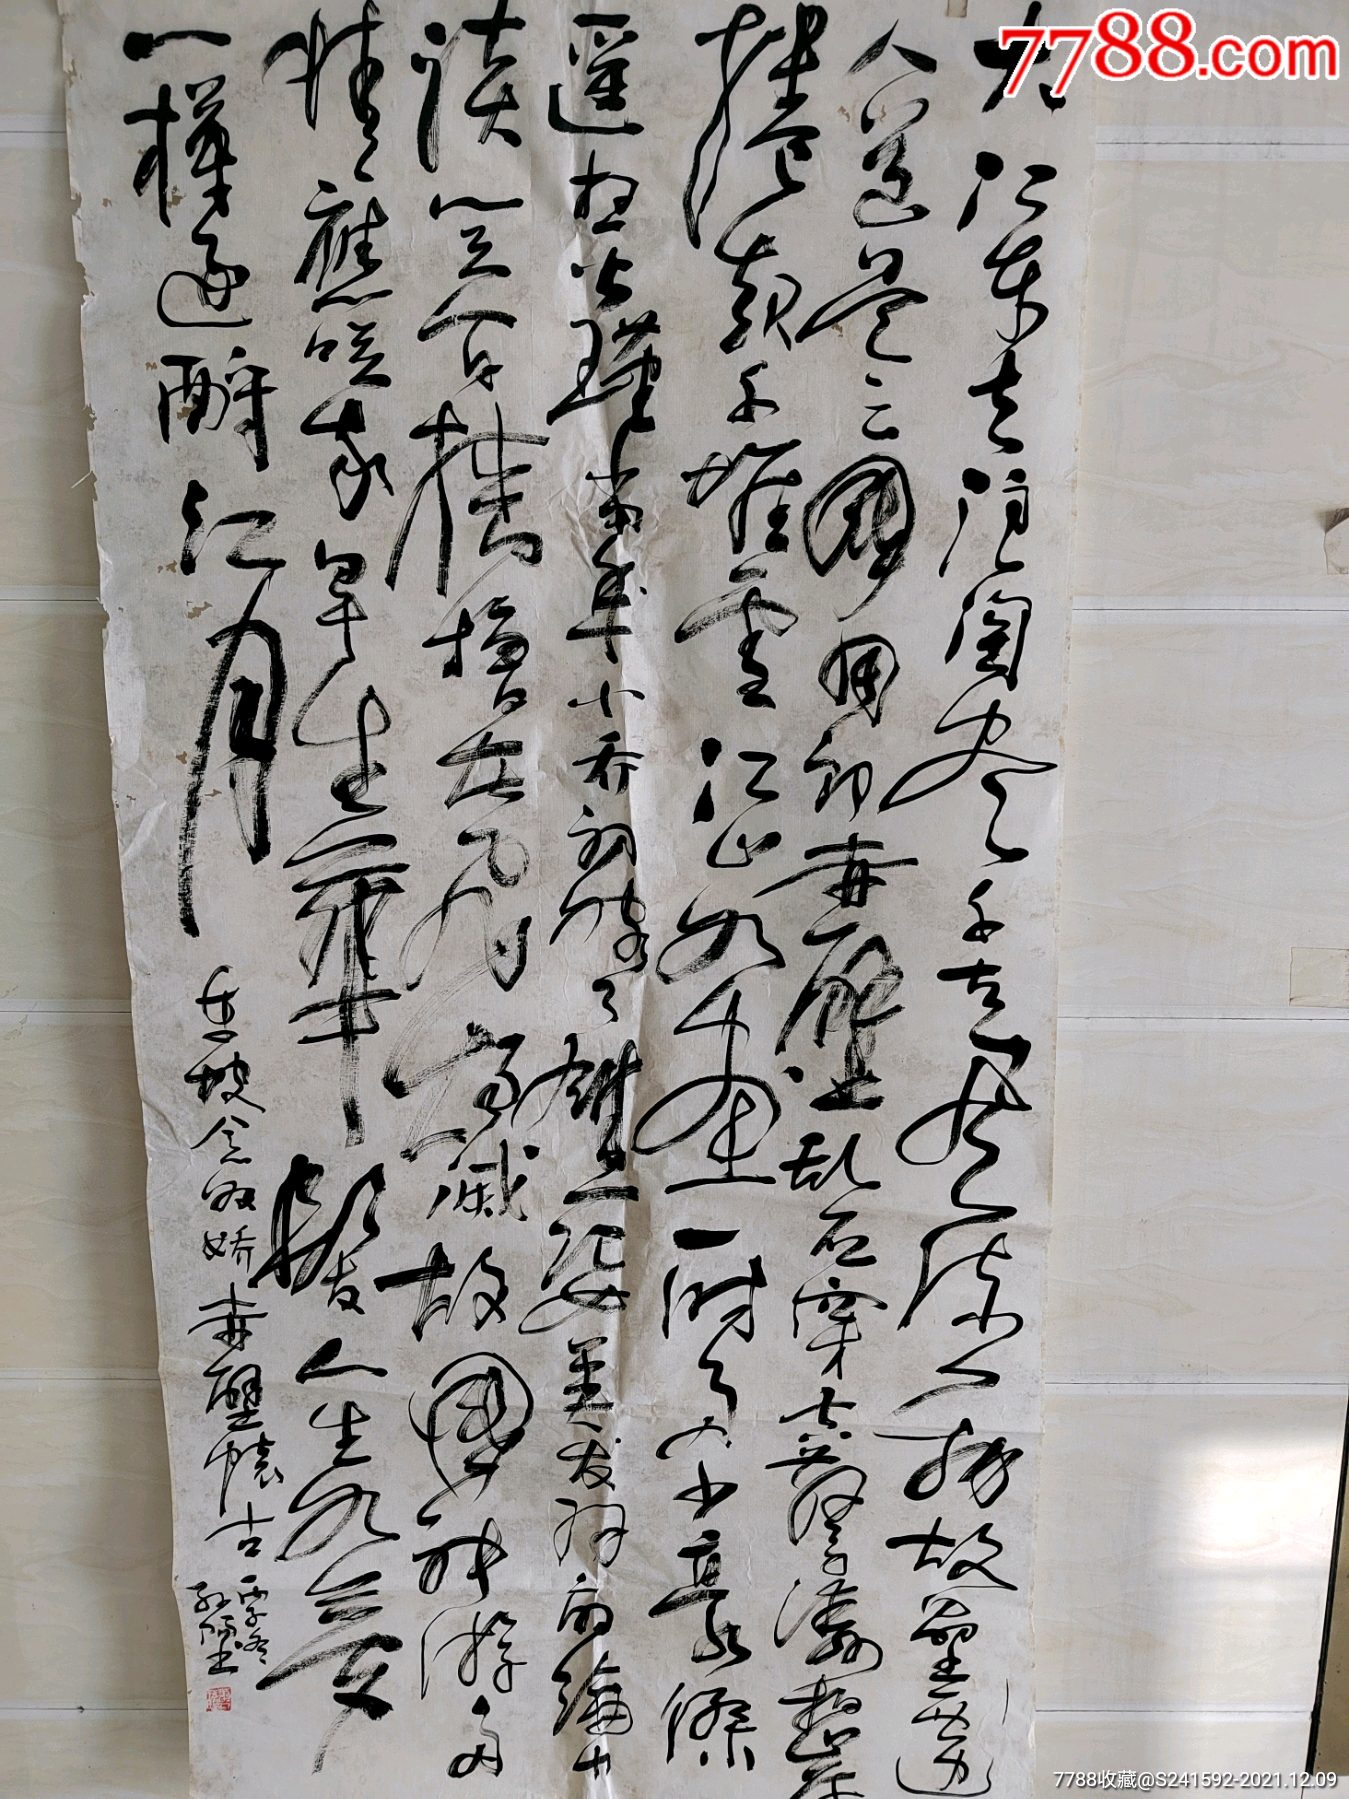 7788.com
大江东去浪淘尽千古风流人物故壘西边
人道是三國周郎赤壁乱石穿空驚濤拍岸
捲起千堆雪江山如画一时多少豪傑
遥想公瑾當年小乔初嫁了雄姿英发羽扇綸巾
談笑间樯櫓灰飛烟滅故國神游多
情應笑我早生華髮人生如夢
一樽还酹江月
东坡念奴娇赤壁懷古
丙子冬
7788收藏@S241592-2021.12.09